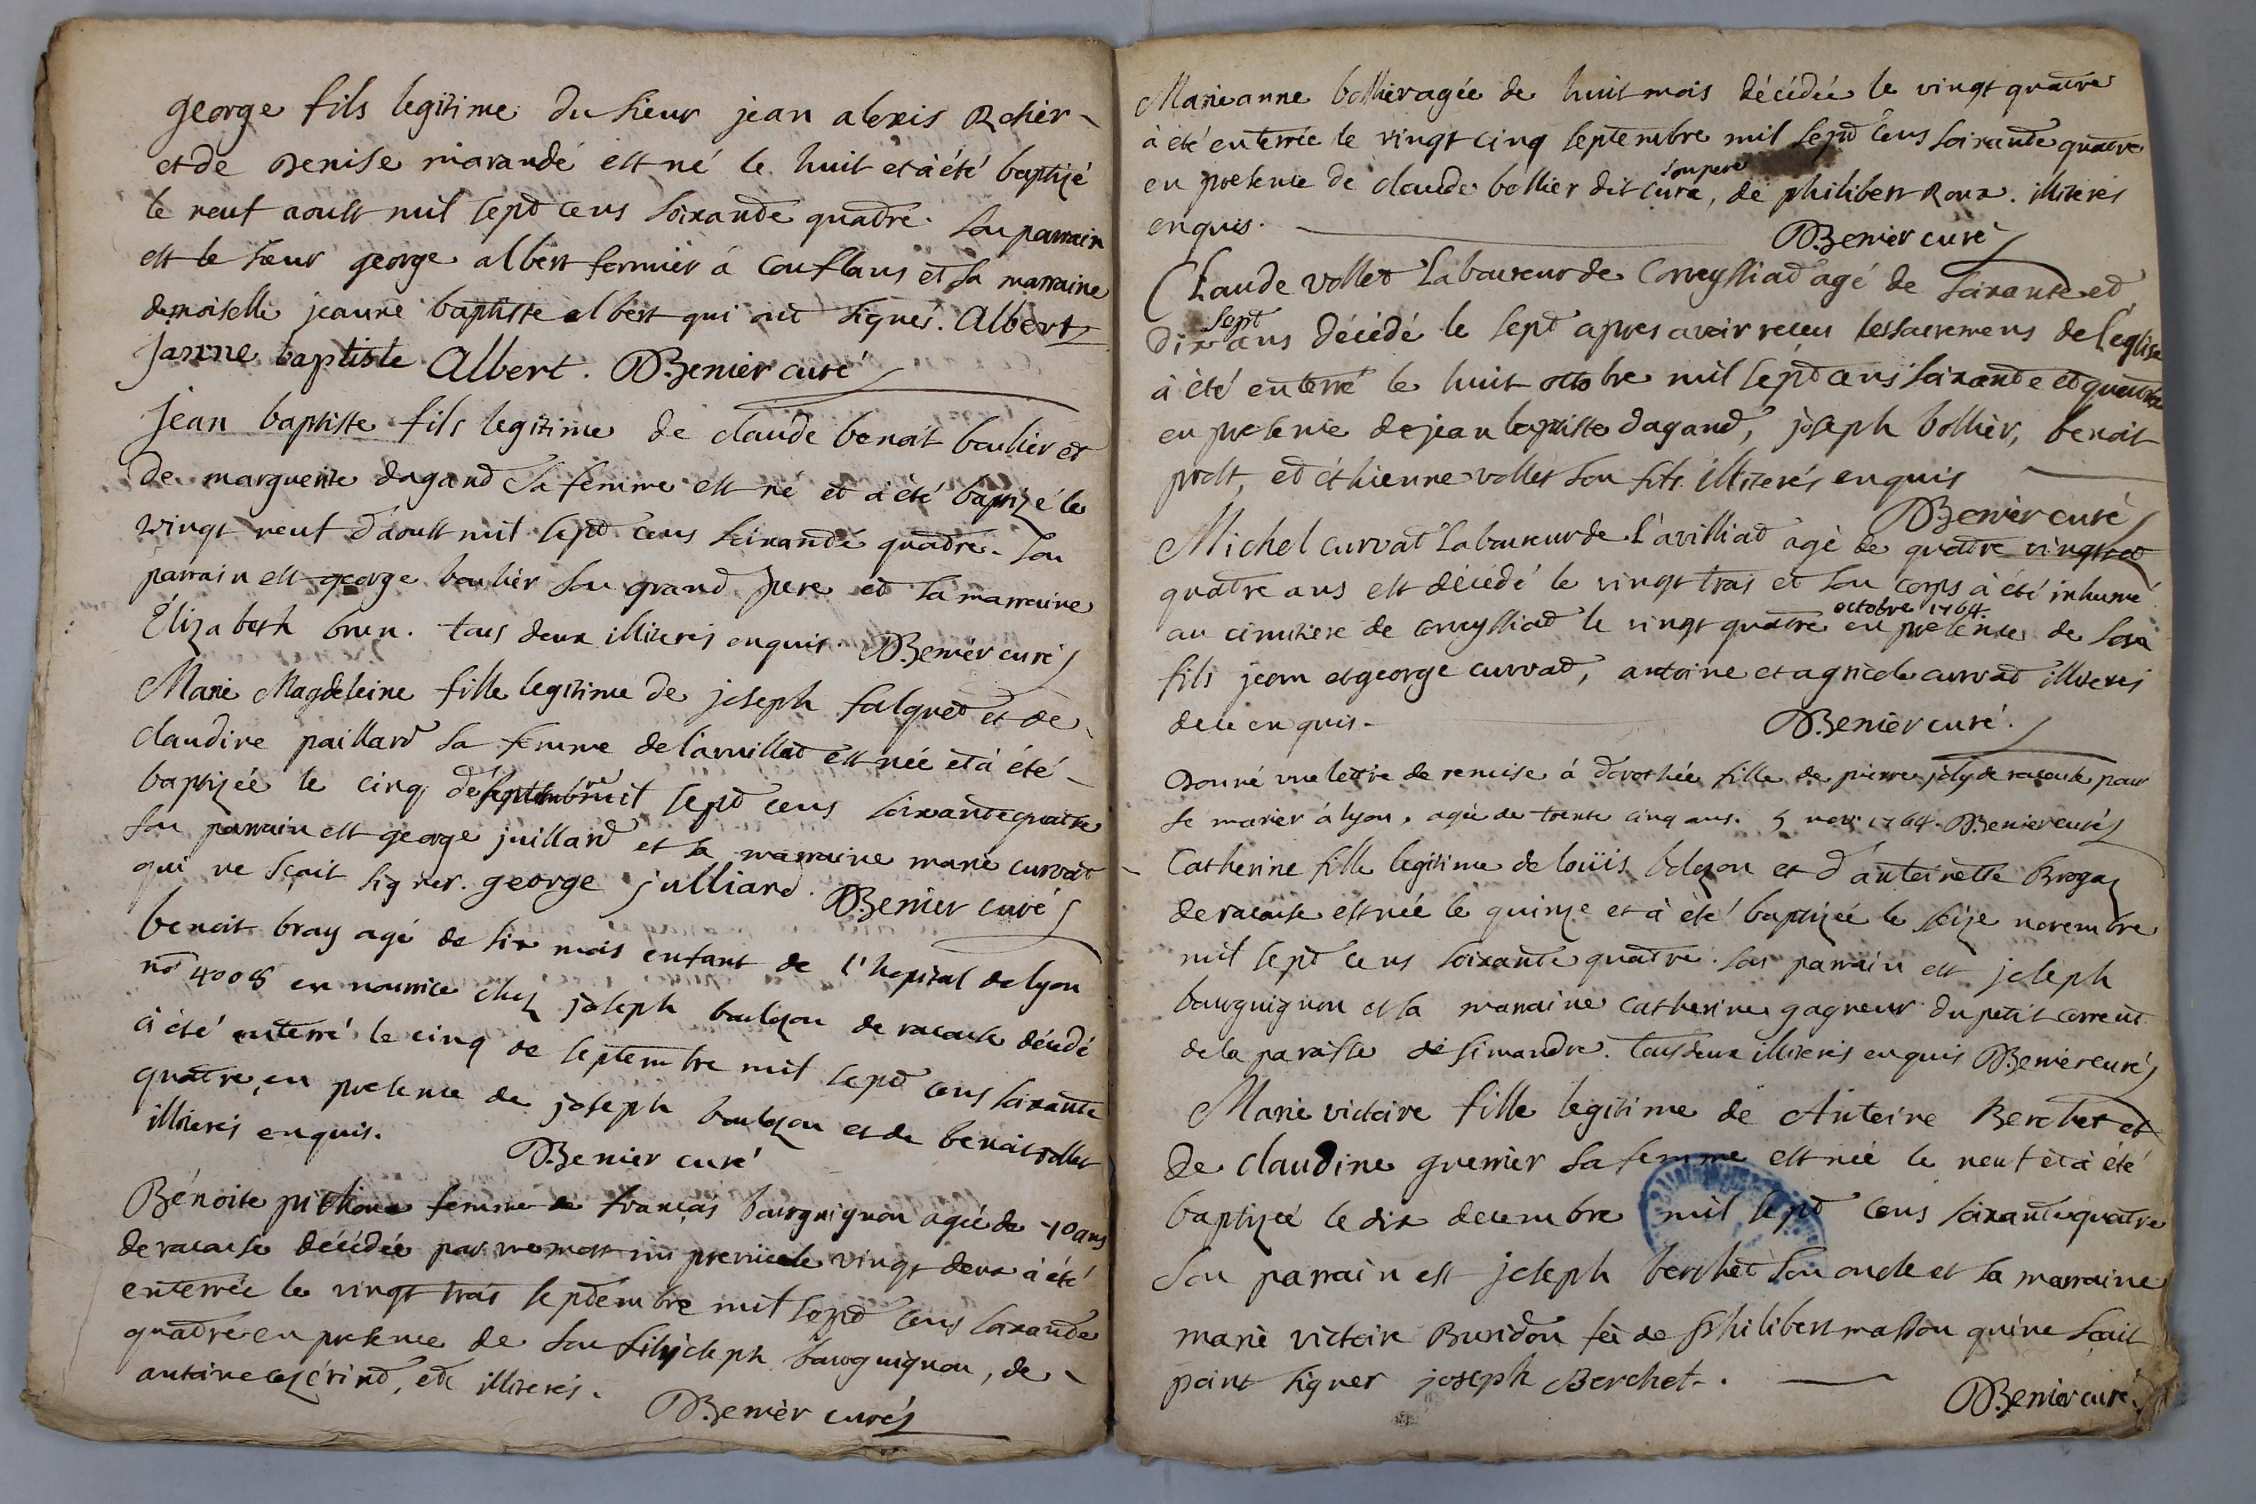 george fils legitime du sieur jean alexis Rohér
et de Denise marandé est né le huit et à été baptizé
le neuf aoust mil sept cens soixante quatre. son parrain
est le sieur george albert fermier á Conflans et sa marraine
demoiselle jeanne baptiste albert qui ont signés. Albert
janne baptiste Albert. D.Benier curé
jean baptiste fils legitime de claude benoit boulier et
de marguerite dagand sa femme est né et à été baptizé le
vingt neuf d'aoust mil sept cens soixante quatre. son
parrain est george boulier son grand pere et sa marraine
Élizabeth brun. tous deux illiterés enquis. D.Benier curé
Marie Magdeleine fille legitime de joseph falquet et de
claudine paillard sa femme de l'avillat est née et à été
baptizée le cinq de septembre mil sept cens soixante quatre
son parrain est george juillard et sa marraine marie curvat
qui ne sçait signer. george julliard. D.Benier curé
benoit bray agé de six mois enfant de l'hopital de lyon
no 4008 en nourrice chez joseph boulezon de racouse décédé
à été enterré le cinq de septembre mil sept cens soixante
quatre, en presence de joseph boulezon et de benoit vollet
illiterés enquis.
D.Benier curé
Bénoite femme de françois bourguignon agée de 70 ans
de racouse décédée par une mort le vingt deux à été
enterrée le vingt trois septembre mil sept cens soixante
quatre en presence de son fils joseph bourguignon, de
antoine , etc illiterés.
D.Benier curé
Marie anne bollier agée de huit mois décédée le vingt quatre
à été enterrée le vingt cinq septembre mil sept cens soixante quatre
en presence de claude bollier dit cura, son pere de philibert Roux. illiterés
enquis.
D.Benier curé
Claude vollet Laboureur de Corveyssiat agé de soixante et
dix sept ans décédé le sept apres avoir receu les sacremens de l'eglise
à été enterré le huit octobre mil sept cens soixante et quatre
en presence de jean baptiste dagand, joseph bollier, benoit
prost, et éthienne vollet son fils illiterés enquis
D.Benier curé
Michel curvat Laboureur de L'avilliat agé de quatre vingt et
quatre ans est décédé le vingt trois et son corps à été inhumé
au cimitiere de corveyssiat le vingt quatre octobre 1764 en presence de son
fils jean et george curvat, antoine et agricole curvat illiterés
de ce enquis.
D.Benier curé.
Donné une lettre de remise á dorothée fille de pierre joly de racouse pour
se marier á lyon, agée de trente cinq ans. 5 novr. 1764. D.Benier curé
Catherine fille legitime de loüis bolozon et d'antoinette Brogaz
de racouse est née le quinze et à été baptizée le seize novembre
mil sept cens soixante quatre. son parrain est joseph
bourguignon et sa marraine catherine gagneur du petit corrent
de la paroisse de simandre. tous deux illiterés enquis D.Benier curé
Marie victoire fille legitime de Antoine Berchet et
de claudine guerrier sa femme est née le neuf et à été
baptizée le dix decembre mil sept cens soixante quatre
son parrain est joseph berchet son oncle et sa marraine
marie victoire Buridon fe de philibert masson qui ne sçait
point signer joseph Berchet.
D.Benier curé.